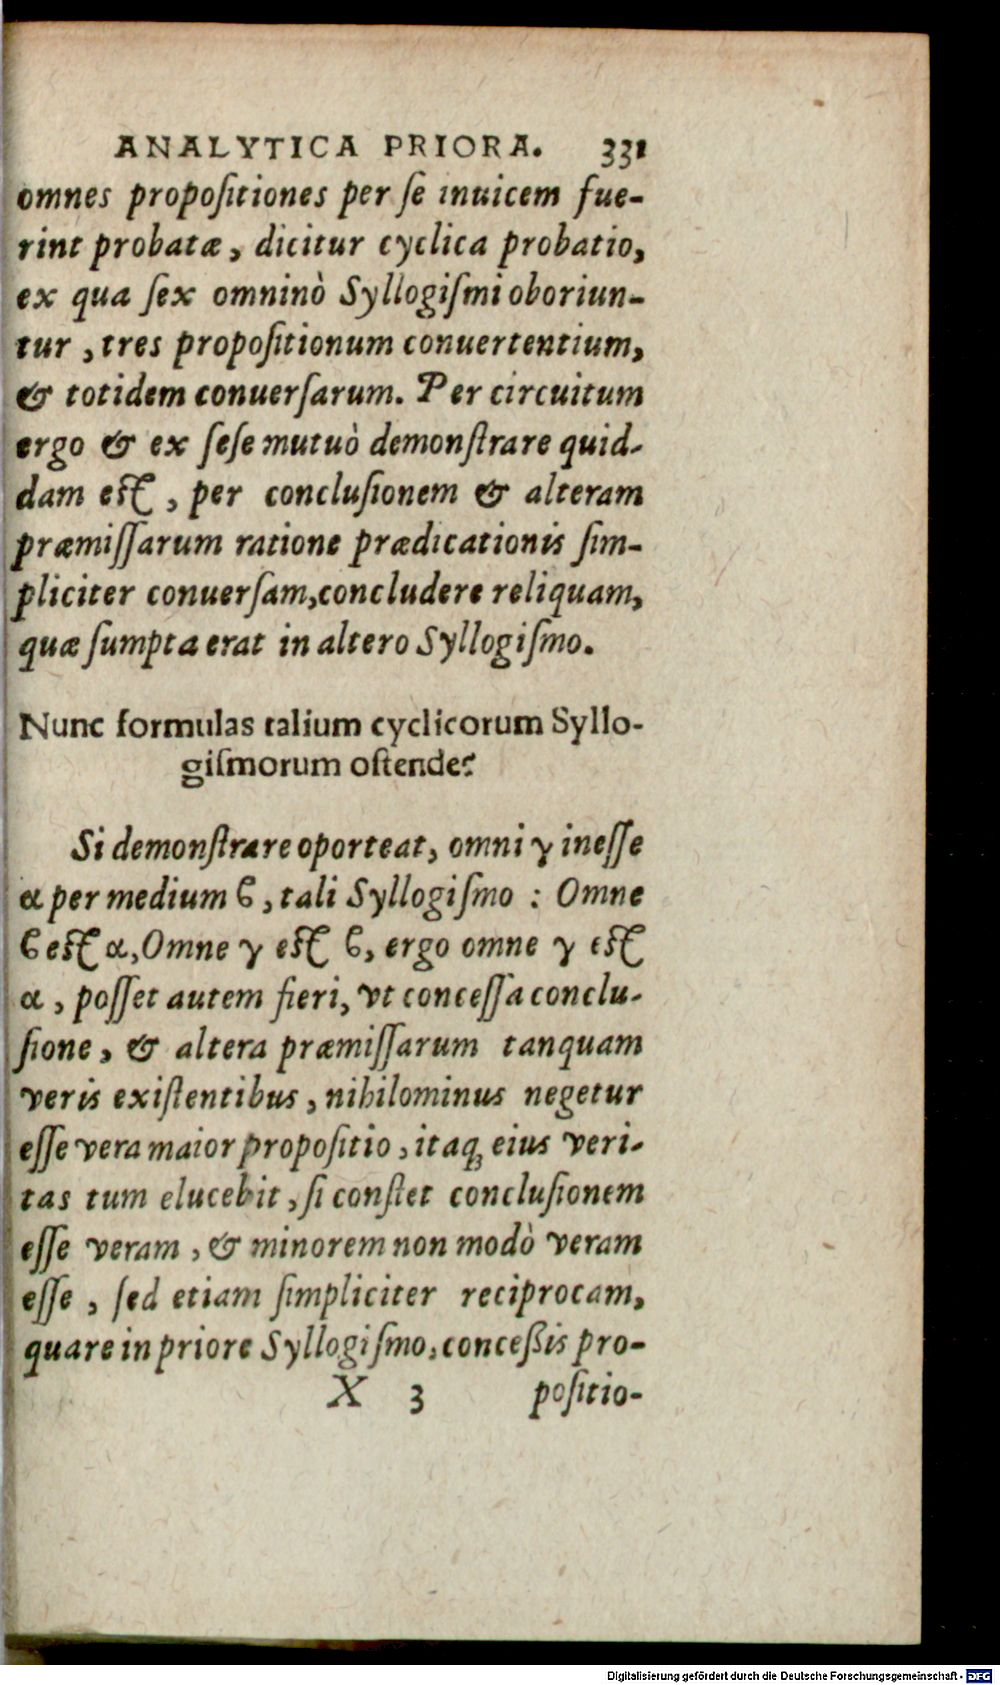 ANALYTICA PRIORA. 331
omnes propoſitiones per ſe inuicem fue-
rint probatæ, dicitur cyclica probatio,
ex qua ſex omninò Syllogiſmi oboriun-
tur, tres propoſitionum conuertentium,
& totidem conuerſarum. Per circuitum
ergo & ex ſeſe mutuò demonſtrare quid-
dam eſt, per concluſionem & alteram
præmiſſarum ratione prædicationis ſim-
pliciter conuerſam, concludere reliquam,
quæ ſumpta erat in altero Syllogiſmo.
Nunc formulas talium cyclicorum Syllo-
giſmorum oſtende?
Si demonſtrare oporteat, omni γ ineſſe
α per medium ϐ, tali Syllogiſmo : Omne
ϐ eſt α, Omne γ eſt ϐ, ergo omne γ eſt
α, poſſet autem fieri, vt conceſſa conclu-
ſione, & altera præmiſſarum tanquam
veris exiſtentibus, nihilominus negetur
eſſe vera maior propoſitio, itaq; eius veri-
tas tum elucebit, ſi conſtet concluſionem
eſſe veram, & minorem non modò veram
eſſe, ſed etiam ſimpliciter reciprocam,
quare in priore Syllogiſmo, conceßis pro-
X 3 poſitio-
Digitalisierung gefördert durch die Deutsche Forschungsgemeinschaft - DFG